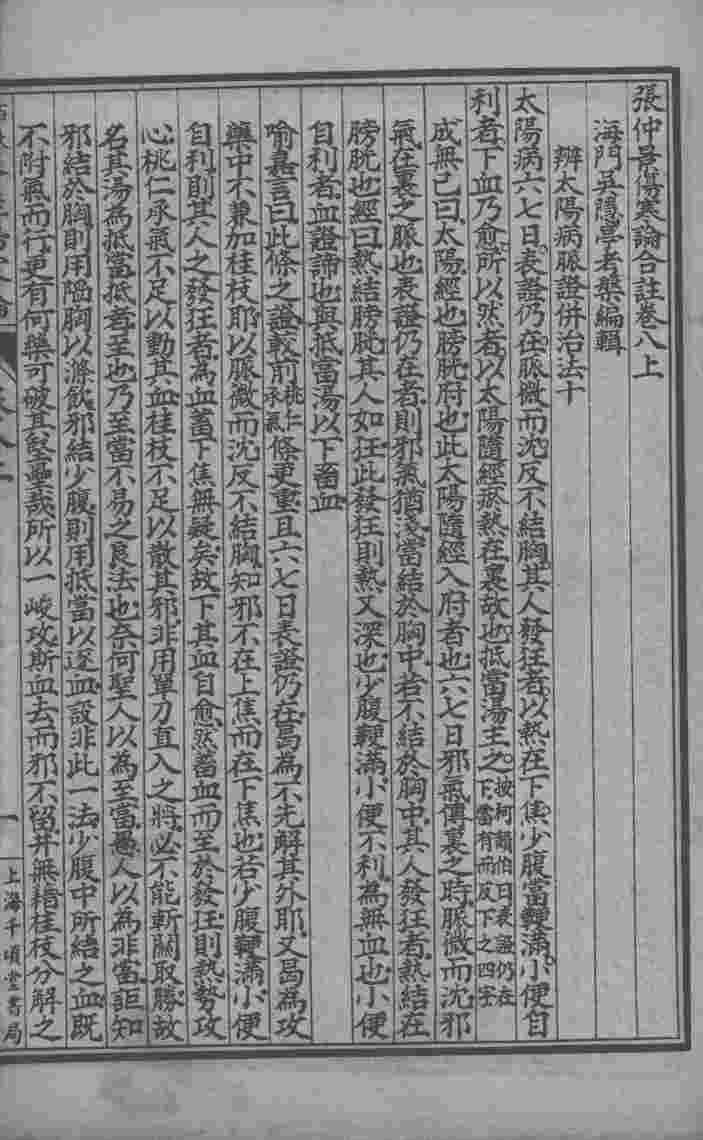 張仲景傷寒論合註卷八上
海門吳隱亭考槃編輯
辨太陽病脈證併治法十
太陽病六七日表證仍在脈微而沈反不結胸其人發狂者以熱在下焦少腹當鞕滿小便自
利者下血乃愈所以然者以太陽隨經瘀熱在裏故也抵當湯主之按柯韻伯曰表證仍在下當有而反下之四字
成無己曰太陽經也膀胱府也此太陽隨經入府者也六七日邪氣傳裏之時脈微而沈邪
氣在裏之脈也表證仍在者則邪氣猶淺當結於胸中若不結於胸中其人發狂者熱結在
膀胱也經曰熱結膀胱其人如狂此發狂則熱又深也少腹鞕滿小便不利為無血也小便
自利者血證諦也與抵當湯以下畜血
喻嘉言曰此條之證較前桃仁承氣條更重且六七日表證仍在曷為不先解其外耶又曷為攻
藥中不兼加桂枝耶以脈微而沈反不結胸知邪不在上焦而在下焦也若少腹鞕滿小便
自利則其人之發狂者為血蓄下焦無疑矣故下其血自愈然蓄血而至於發狂則熱勢攻
心桃仁承氣不足以動其血桂枝不足以散其邪非用單刀直入之將必不能斬關取勝故
名其湯為抵當抵者至也乃至當不易之良法也奈何聖人以為至當愚人以為非當詎知
邪結於胸則用陷胸以滌飲邪結少腹則用抵當以逐血設非此一法少腹中所結之血既
不附氣而行更有何藥可破其堅壘哉所以一峻攻斯血去而邪不留并無藉桂枝分解之
上海千頃堂書局